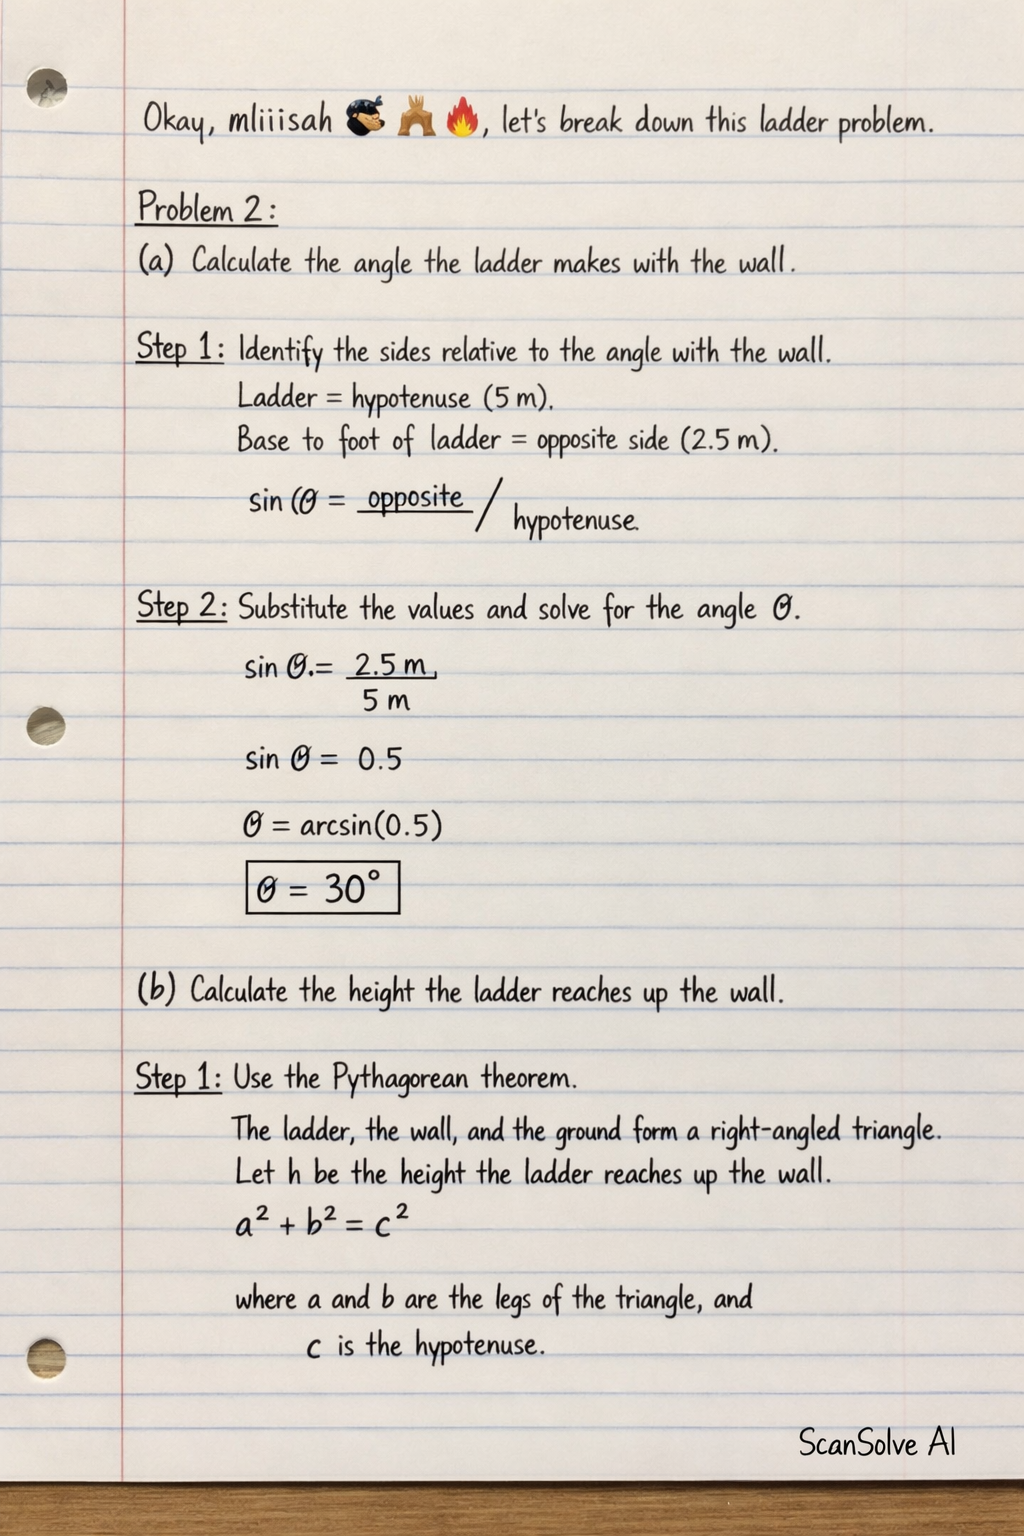 Okay, mliiisah, let's break down this ladder problem.
Problem 2:
(a) Calculate the angle the ladder makes with the wall.
Step 1: Identify the sides relative to the angle with the wall.
Ladder = hypotenuse (5 m).
Base to foot of ladder = opposite side (2.5 m).
sin (θ = opposite / hypotenuse.
Step 2: Substitute the values and solve for the angle θ.
sin θ.= 2.5 m,
5 m
sin θ = 0.5
θ = arcsin(0.5)
θ = 30°
(b) Calculate the height the ladder reaches up the wall.
Step 1: Use the Pythagorean theorem.
The ladder, the wall, and the ground form a right-angled triangle.
Let h be the height the ladder reaches up the wall.
a² + b² = c²
where a and b are the legs of the triangle, and
c is the hypotenuse.
ScanSolve AI